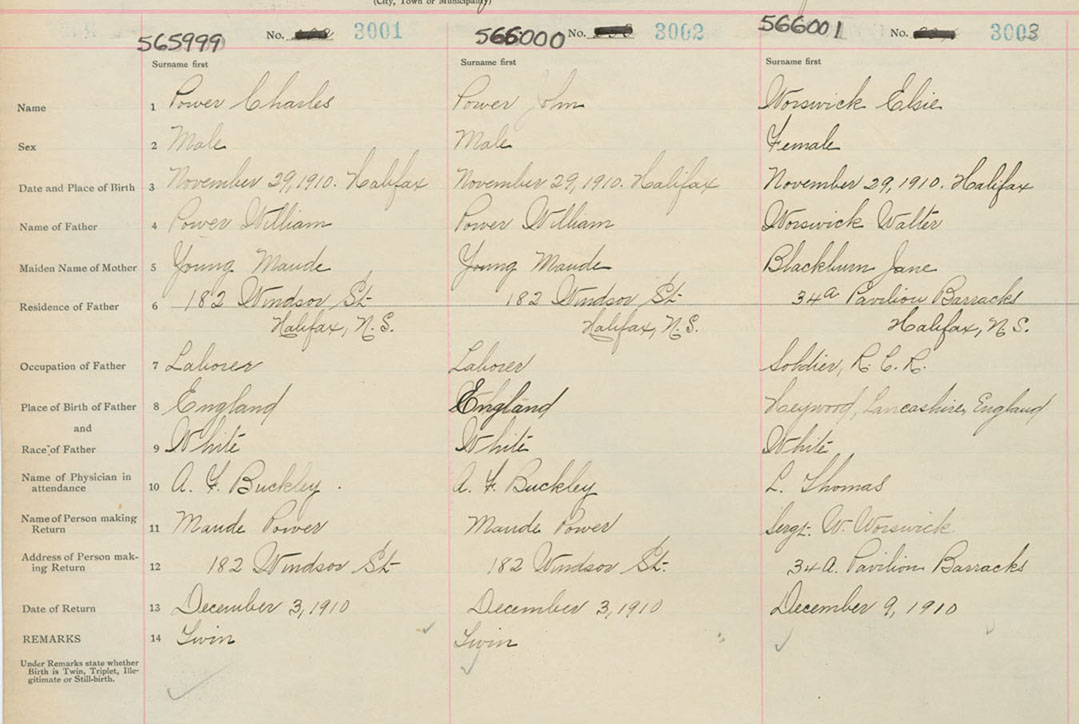 (City, Town or Municipality)
565999 No. 3001 566000 No. 3002 566001 No. 3003
Surname first Surname first Surname first
Name 1 Power Charles Power John Worswick Elsie
Sex 2 Male Male Female
Date and Place of Birth 3 November 29, 1910. Halifax November 29, 1910. Halifax November 29, 1910. Halifax
Name of Father 4 Power William Power William Worswick Walter
Maiden Name of Mother 5 Young Maude Young Maude Blackburn Jane
Residence of Father 6 182 Windsor St. 182 Windsor St. 34a Pavilion Barracks
Halifax, N.S. Halifax, N.S. Halifax, N.S.
Occupation of Father 7 Laborer Laborer Soldier, R.C.R.
Place of Birth of Father 8 England England Heywood, Lancashire, England
and
Race of Father 9 White White White
Name of Physician in
attendance 10 A. F. Buckley. A. F. Buckley L. Thomas
Name of Person making
Return 11 Maude Power Maude Power Sergt. W. Worswick
Address of Person mak-
ing Return 12 182 Windsor St. 182 Windsor St. 34 A. Pavilion Barracks
Date of Return 13 December 3, 1910 December 3, 1910 December 9, 1910
REMARKS 14 Twin Twin
Under Remarks state whether
Birth is Twin, Triplet, Ille-
gitimate or Still-birth.